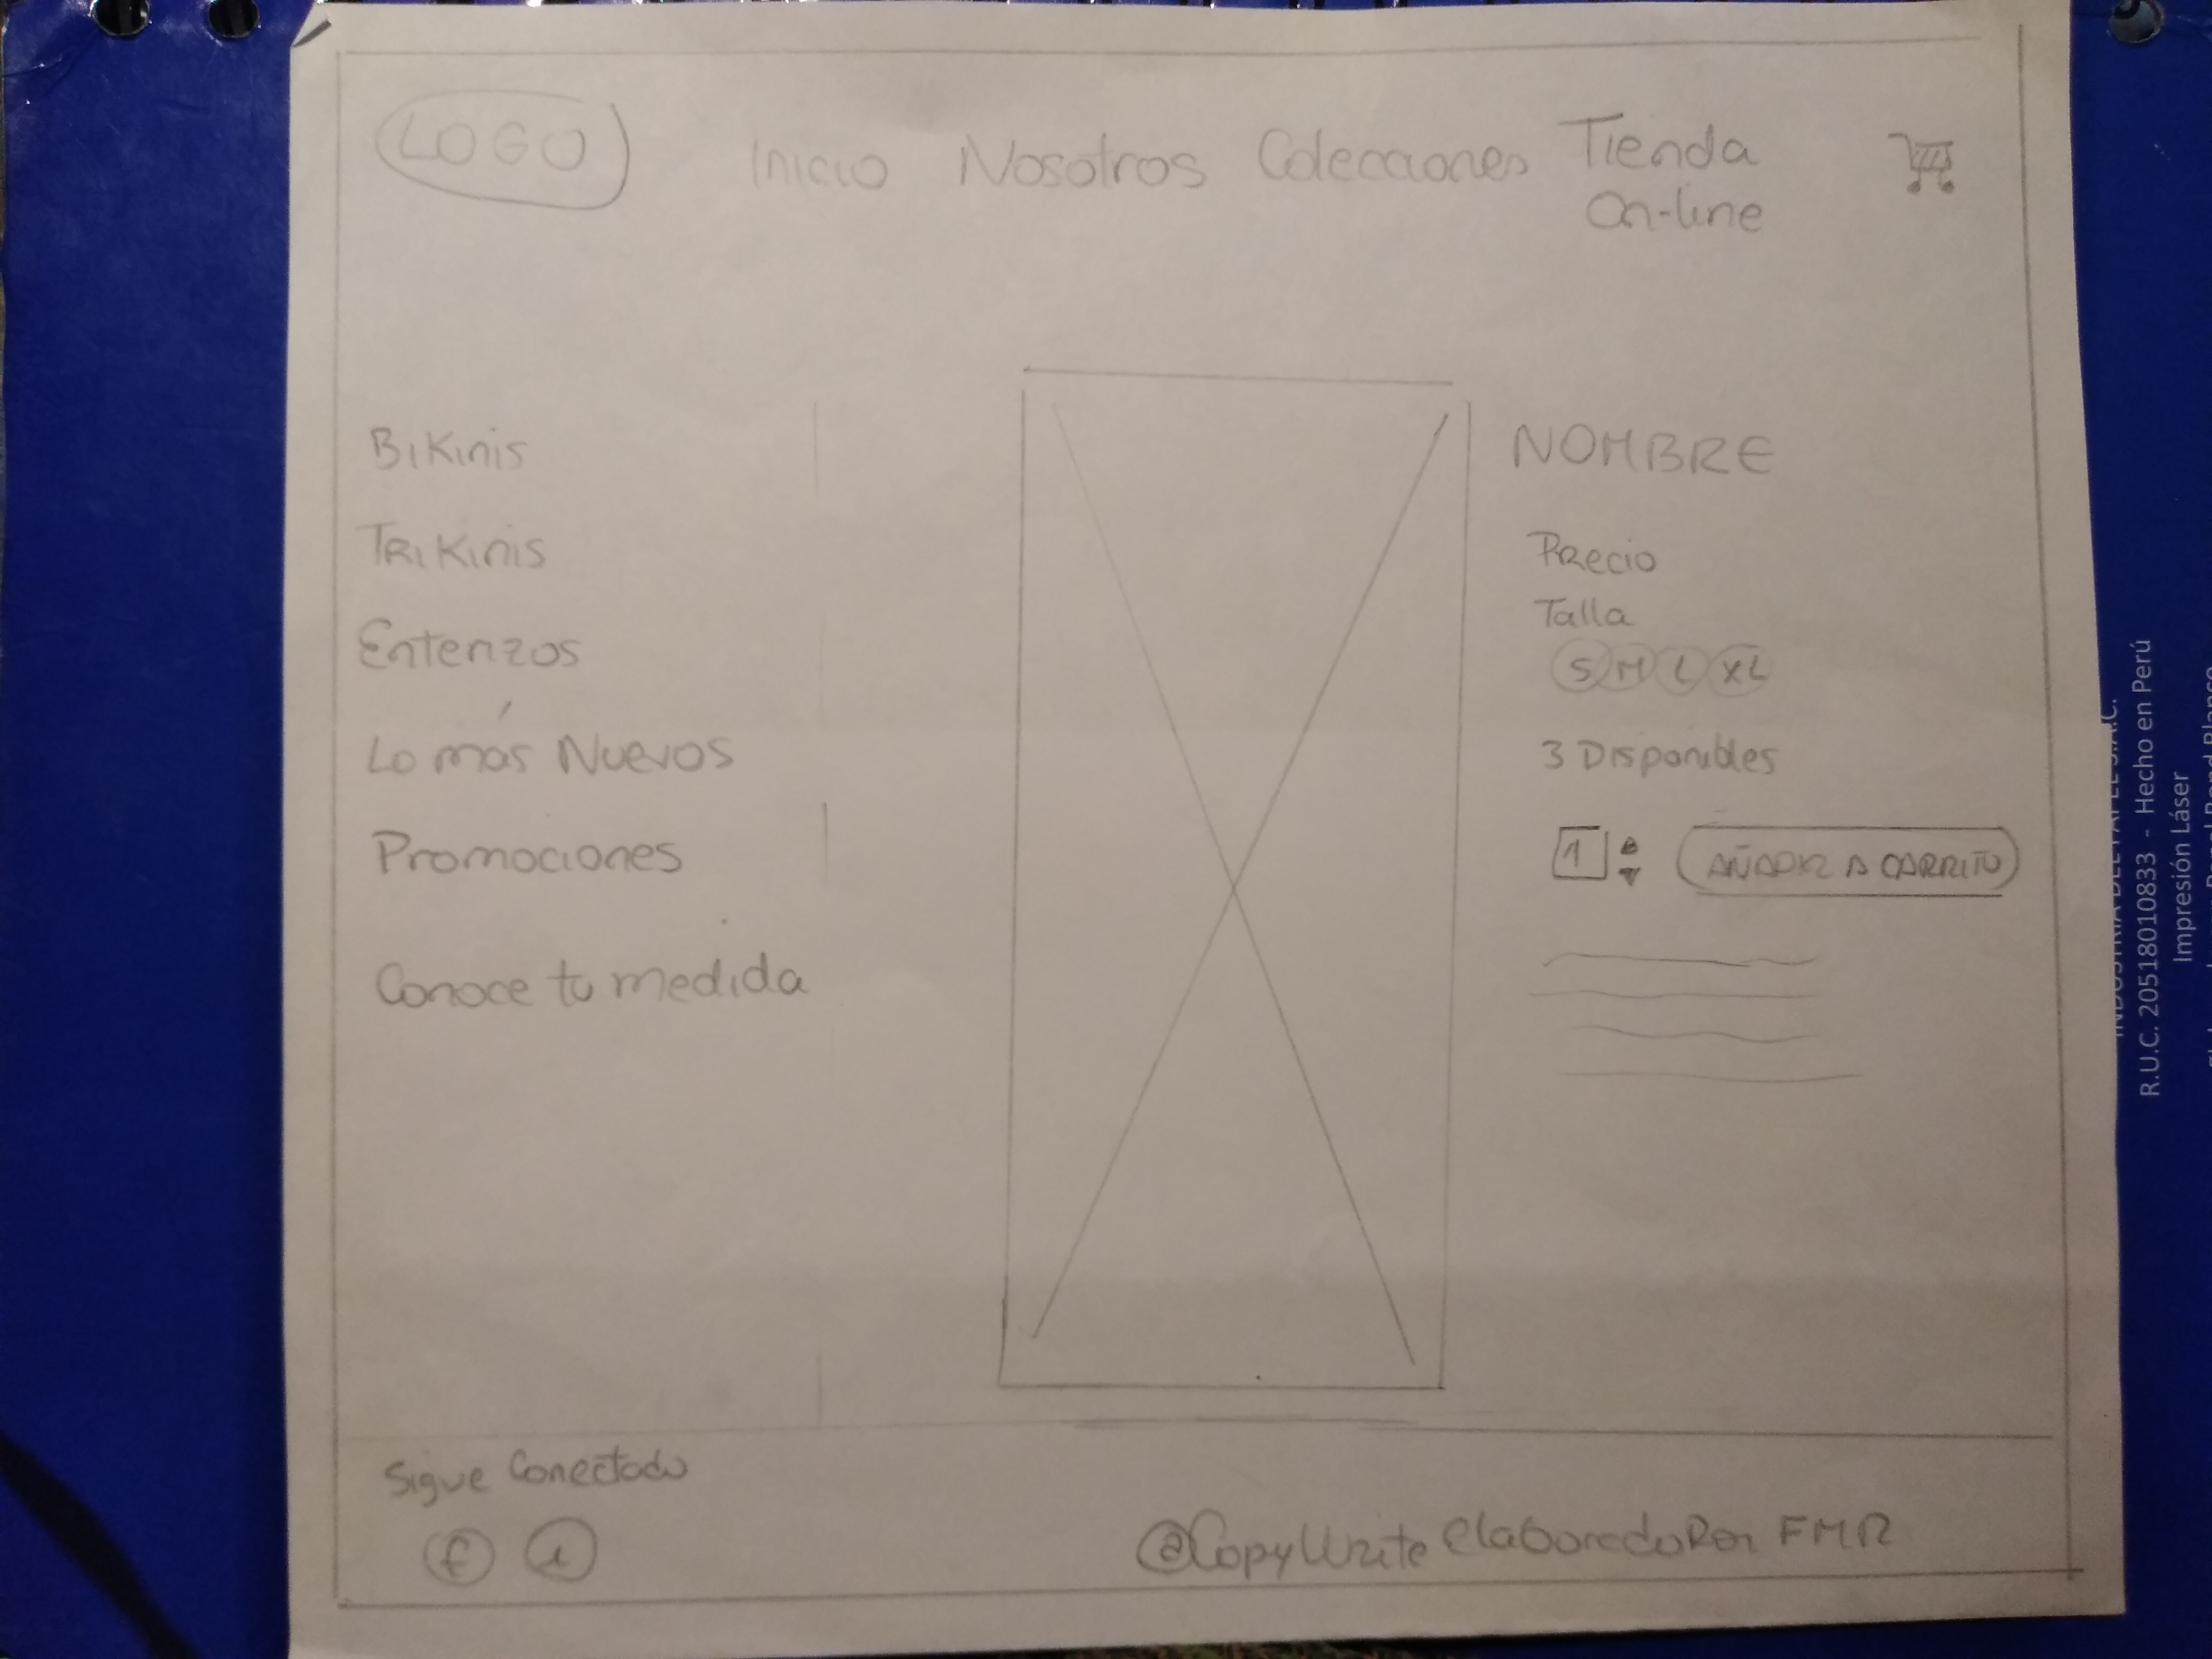 LOGO
Inicio Nosotros Colecciones Tienda
On-line
Bikinis
Trikinis
Enterizos
Lo más Nuevos
Promociones
Conoce tu medida
NOMBRE
Precio
Talla
S M L XL
3 Disponibles
1 AÑADIR A CARRITO
Sigue Conectado
f i
@CopyWrite Elaborado Por FMR
R.U.C. 20518010833 - Hecho en Perú
Impresión Láser